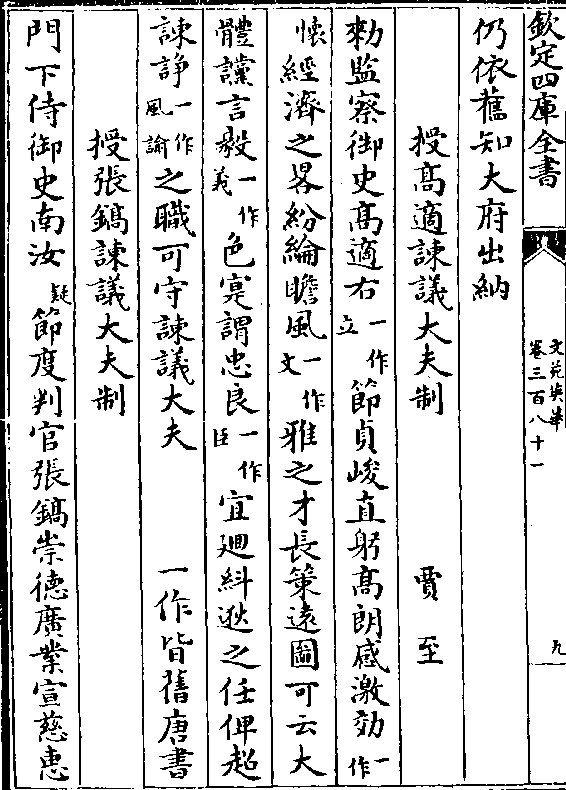 欽定四庫全書
文苑英華
卷三百八十一
九
仍依舊知大府出納
授高適諫議大夫制 賈至
勑監察御史高適右一作立節貞峻直躬高朗感激効一作
懷經濟之畧紛綸瞻風一作文雅之才長策遠圖可云大
體讜言毅一作義色寔謂忠良一作臣宜迴糾逖之任俾超
諫諍一作風諭之職可守諫議大夫 一作皆舊唐書
授張鎬諫議大夫制
門下侍御史南汝疑節度判官張鎬崇德廣業宣慈惠